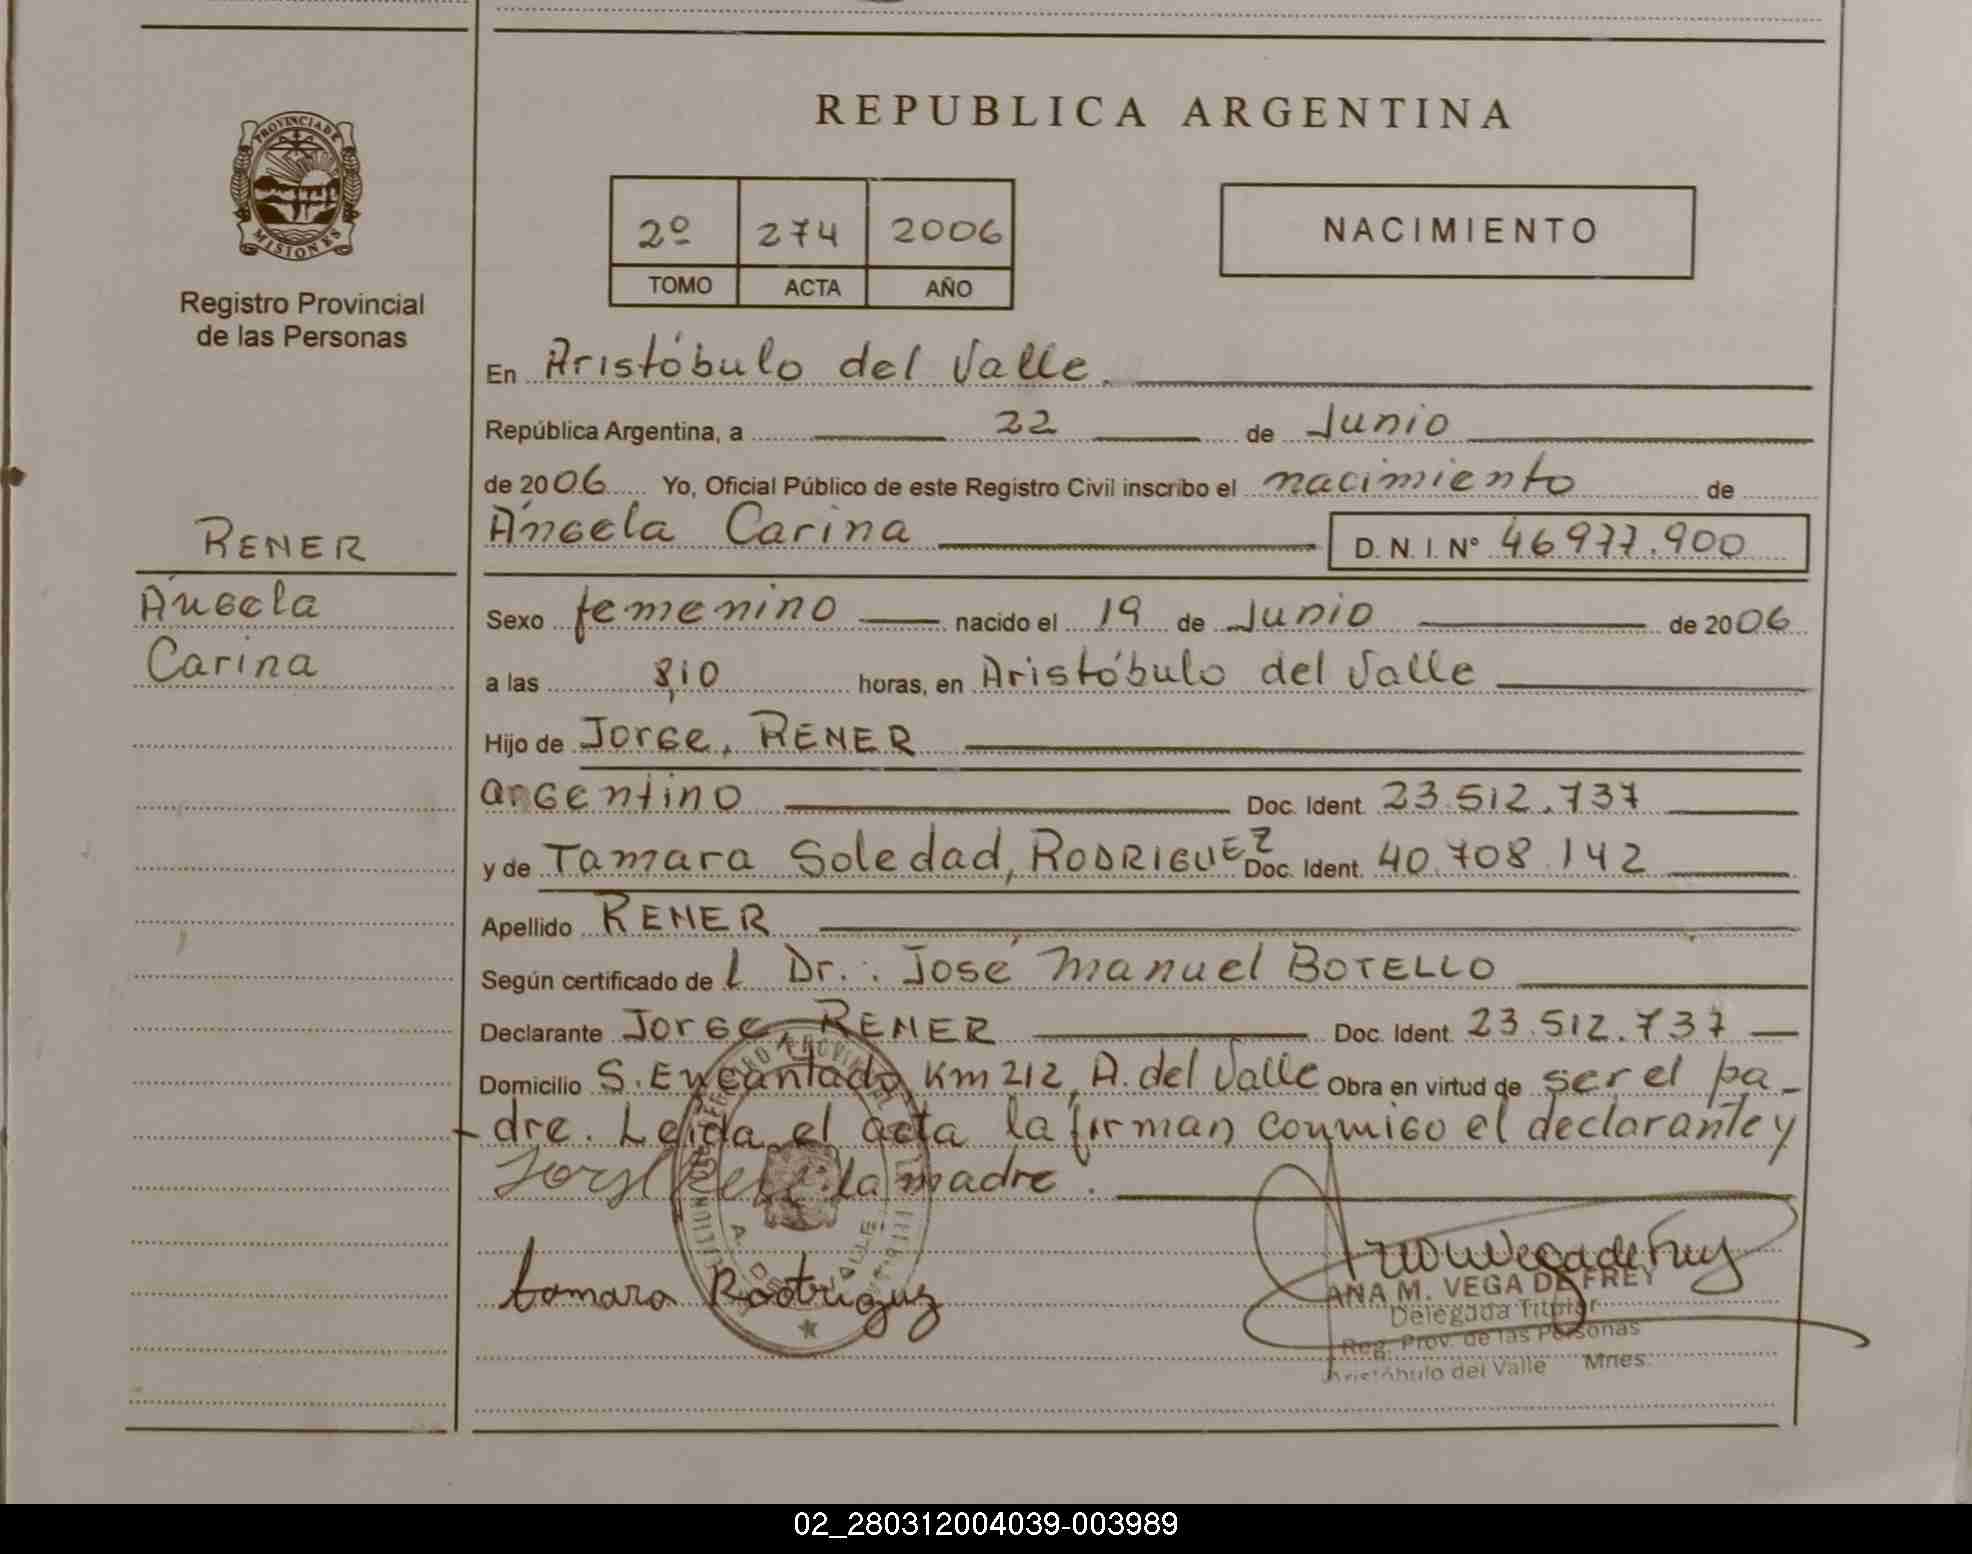 REPUBLICA ARGENTINA
PROVINCIA DE
MISIONES
Registro Provincial
de las Personas
2º 274 2006
TOMO ACTA AÑO
NACIMIENTO
En Aristóbulo del Valle.
República Argentina, a 22 de Junio
de 2006 Yo, Oficial Público de este Registro Civil inscribo el nacimiento de
Ángela Carina D.N.I. Nº 46977.900
RENER
Ángela
Carina
Sexo femenino nacido el 19 de Junio de 2006
a las 8,10 horas, en Aristóbulo del Valle
Hijo de Jorge, RENER
argentino Doc. Ident. 23.512.737
y de Tamara Soledad, RODRIGUEZ Doc. Ident. 40.708.142
Apellido RENER
Según certificado del Dr.: José Manuel BOTELLO
Declarante Jorge RENER Doc. Ident. 23.512.737
Domicilio S. Encantado Km 212, A. del Valle Obra en virtud de ser el pa-
dre. Leída el acta la firman conmigo el declarante y
la madre.
tamara Rodriguez
ANA M. VEGA DE FREY
Delegada Titular
Reg. Prov. de las Personas
Aristóbulo del Valle Mnes.
02_280312004039-003989